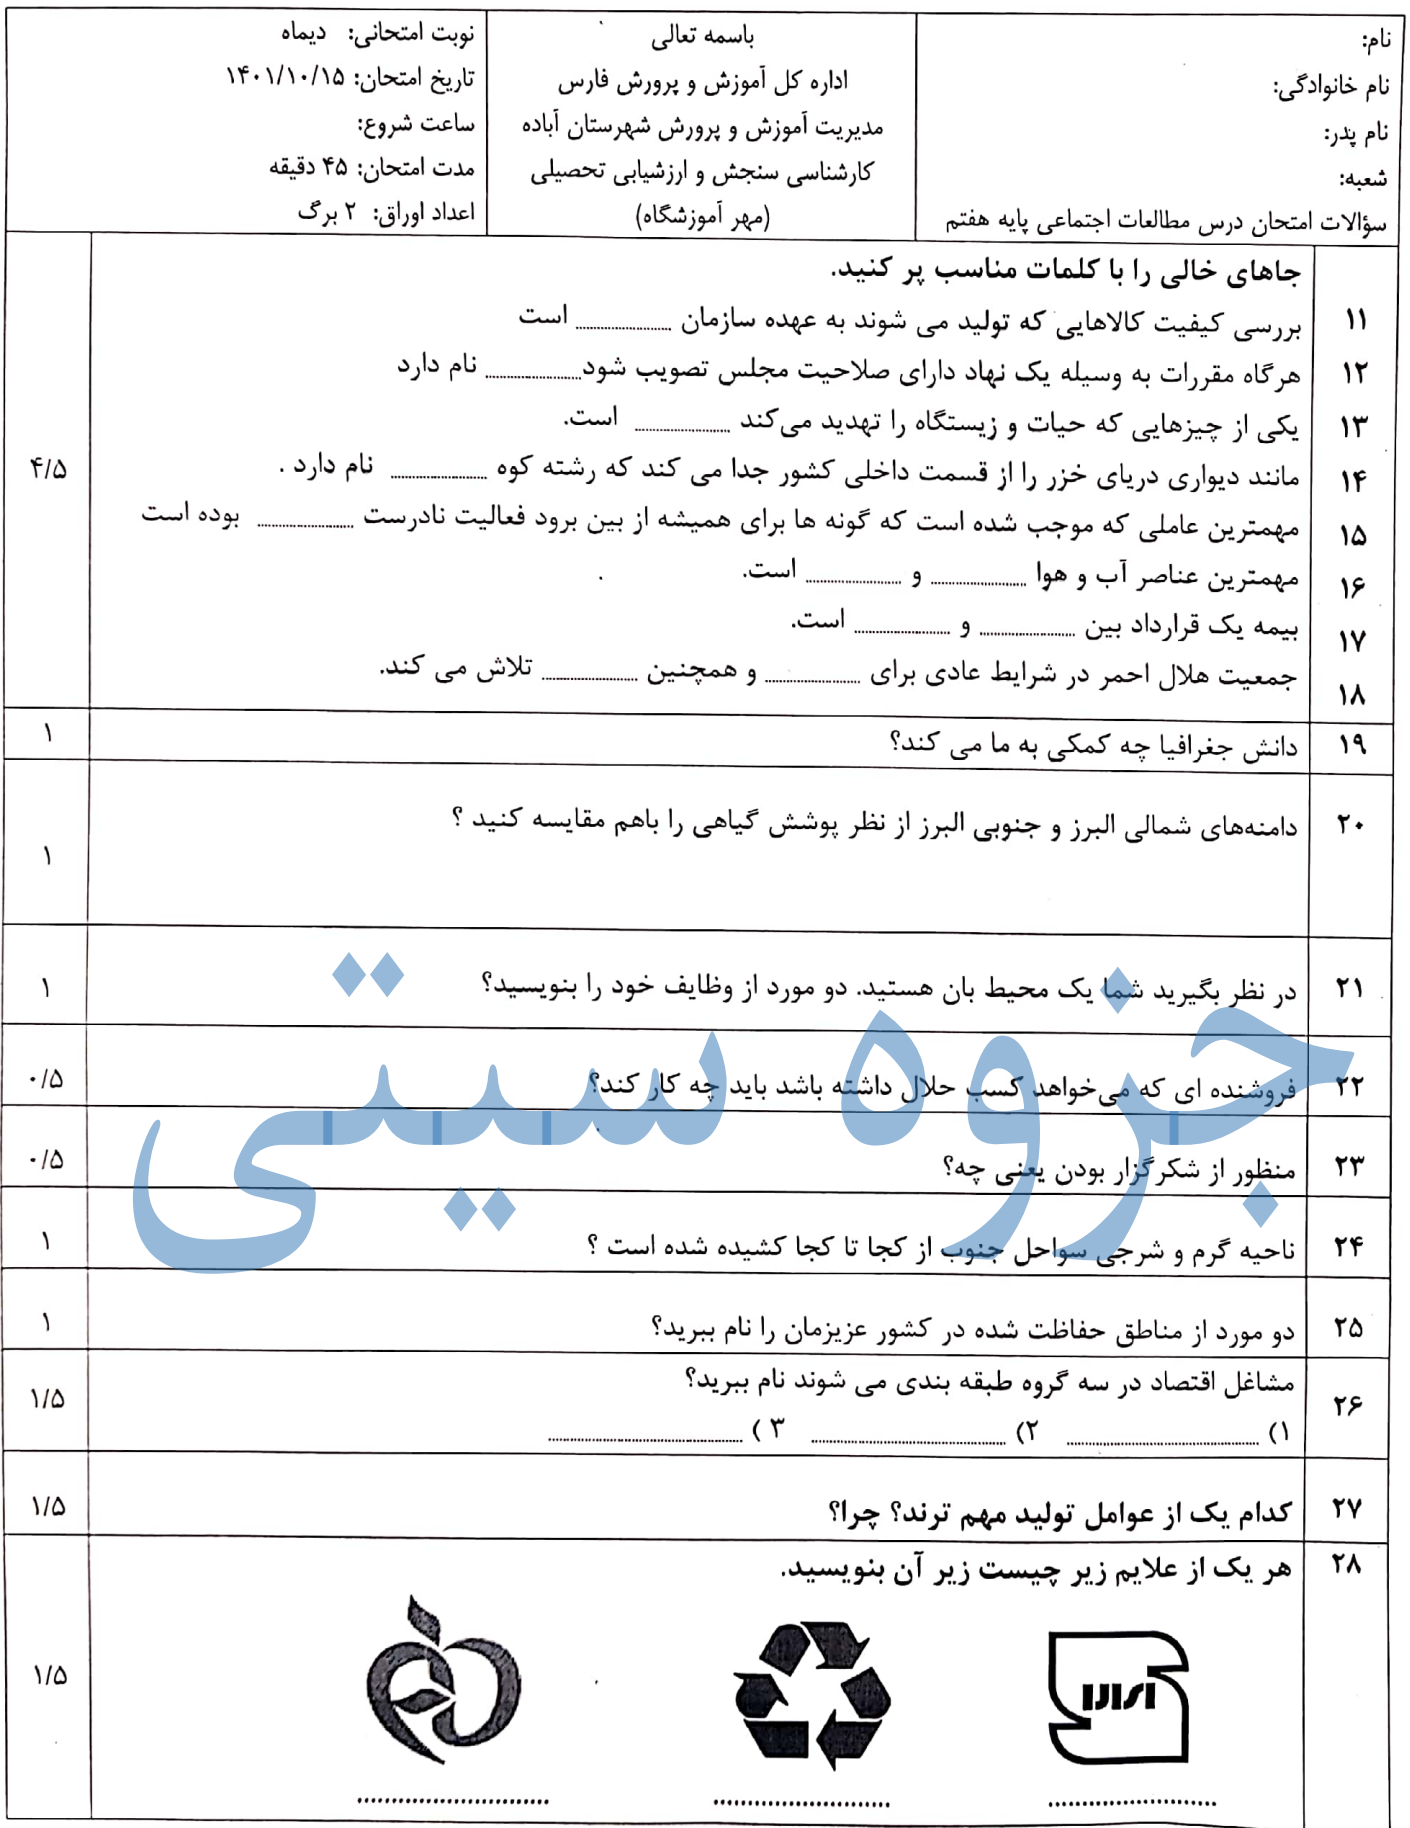 نام:
نام خانوادگی:
نام پدر:
شعبه:
سؤالات امتحان درس مطالعات اجتماعی پایه هفتم
باسمه تعالی
اداره کل آموزش و پرورش فارس
مدیریت آموزش و پرورش شهرستان آباده
کارشناسی سنجش و ارزشیابی تحصیلی
(مهر آموزشگاه)
نوبت امتحانی: دیماه
تاریخ امتحان: ۱۴۰۱/۱۰/۱۵
ساعت شروع:
مدت امتحان: ۴۵ دقیقه
اعداد اوراق: ۲ برگ
جاهای خالی را با کلمات مناسب پر کنید.
۱۱ بررسی کیفیت کالاهایی که تولید می شوند به عهده سازمان .......... است
۱۲ هرگاه مقررات به وسیله یک نهاد دارای صلاحیت مجلس تصویب شود.......... نام دارد
۱۳ یکی از چیزهایی که حیات و زیستگاه را تهدید می‌کند .......... است.
۱۴ مانند دیواری دریای خزر را از قسمت داخلی کشور جدا می کند که رشته کوه .......... نام دارد .
۱۵ مهمترین عاملی که موجب شده است که گونه ها برای همیشه از بین برود فعالیت نادرست .......... بوده است
۱۶ مهمترین عناصر آب و هوا .......... و .......... است.
۱۷ بیمه یک قرارداد بین .......... و .......... است.
۱۸ جمعیت هلال احمر در شرایط عادی برای .......... و همچنین .......... تلاش می کند.
۴/۵
۱۹ دانش جغرافیا چه کمکی به ما می کند؟ ۱
۲۰ دامنه‌های شمالی البرز و جنوبی البرز از نظر پوشش گیاهی را باهم مقایسه کنید ؟ ۱
۲۱ در نظر بگیرید شما یک محیط بان هستید. دو مورد از وظایف خود را بنویسید؟ ۱
جزوه سیتی
۲۲ فروشنده ای که می‌خواهد کسب حلال داشته باشد باید چه کار کند؟ ۰/۵
۲۳ منظور از شکرگزار بودن یعنی چه؟ ۰/۵
۲۴ ناحیه گرم و شرجی سواحل جنوب از کجا تا کجا کشیده شده است ؟ ۱
۲۵ دو مورد از مناطق حفاظت شده در کشور عزیزمان را نام ببرید؟ ۱
۲۶ مشاغل اقتصاد در سه گروه طبقه بندی می شوند نام ببرید؟ ۱/۵
۱) .......... ۲) .......... ۳ ) ..........
۲۷ کدام یک از عوامل تولید مهم ترند؟ چرا؟ ۱/۵
۲۸ هر یک از علایم زیر چیست زیر آن بنویسید.
۱/۵
.......... .......... ..........